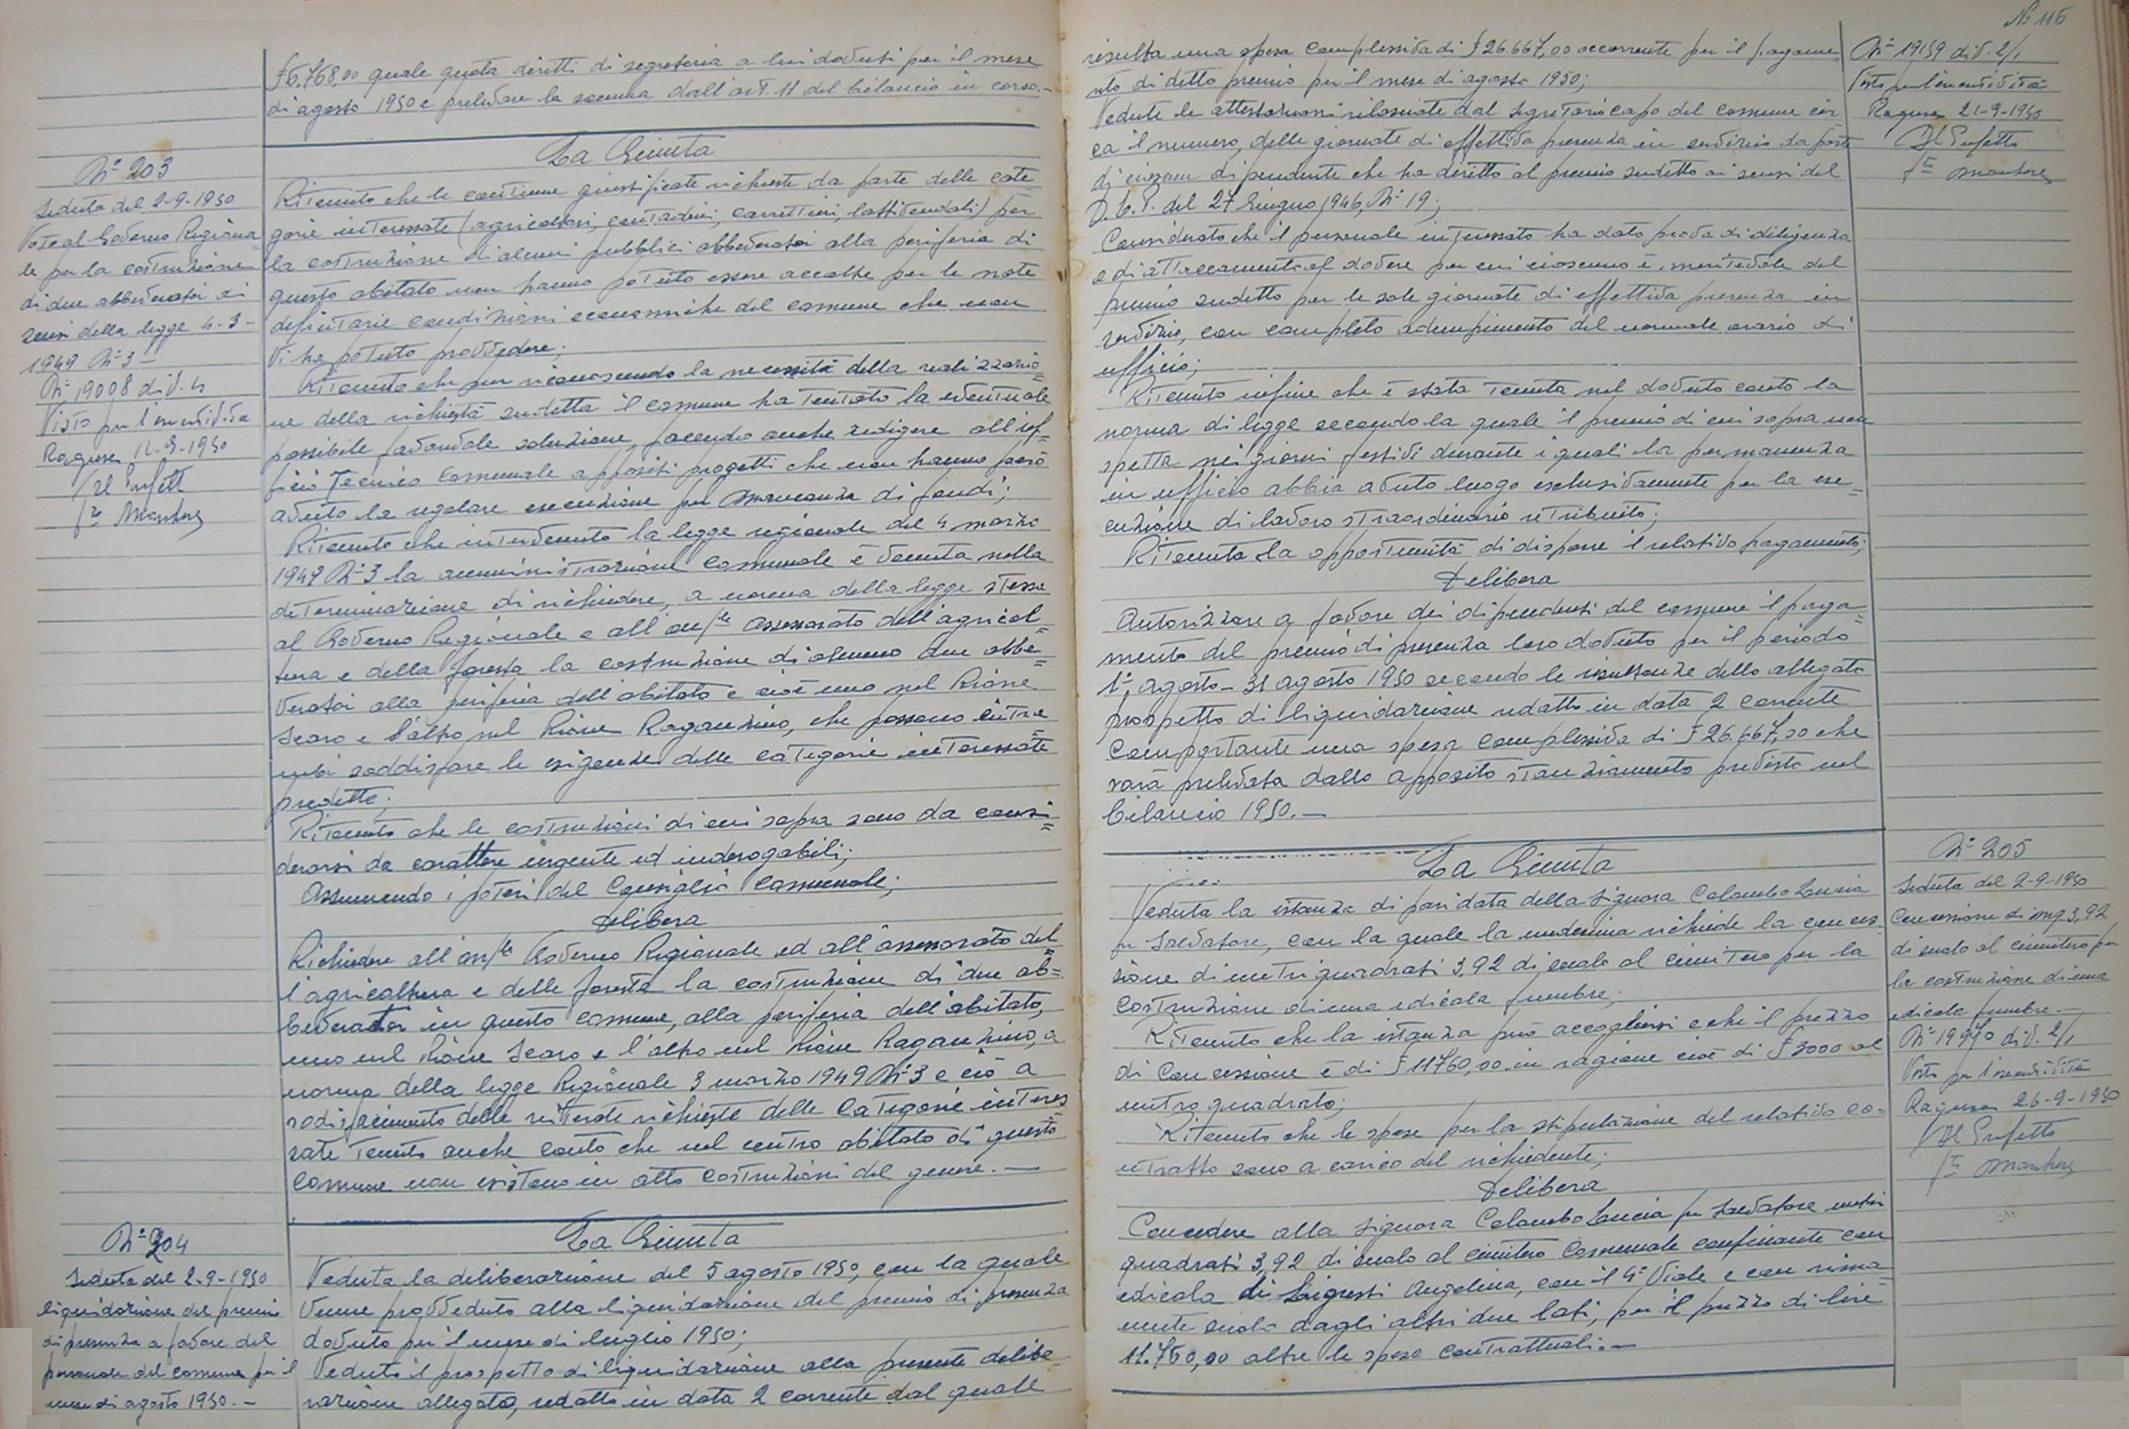 £ 6.768,00 quale quota diritti di segreteria a lui dovuti per il mese
di agosto 1950 e prelevare la somma dall'art. 11 del bilancio in corso.-
La Giunta
N° 203
Seduta del 2-9-1950
Voto al Governo Regiona
le per la costruzione
di due abbeveratoi ai
sensi della legge 4-3-
1949 N° 3 -
N° 19008 div. 4
Visto per l'esecutività
Ragusa 12-9-1950
Il Prefetto
Ritenuto che le continue giustificate richieste da parte delle cate=
gorie interessate (agricoltori, contadini, carrettieri, lattivendoli) per
la costruzione di alcuni pubblici abbeveratoi alla periferia di
questo abitato non hanno potuto essere accolte per le note
deficitarie condizioni economiche del comune che non
vi ha potuto provvedere;
Ritenuto che pur riconoscendo la necessità della realizzazio=
ne della richiesta sudetta il comune ha tentato la eventuale
possibile favorevole soluzione, facendo anche redigere all'uf=
ficio Tecnico Comunale appositi progetti che non hanno però
avuto la regolare esecuzione per mancanza di fondi;
Ritenuto che intervenuta la legge regionale del 4 marzo
1949 N° 3 la amministrazione Comunale è venuta nella
determinazione di richiedere, a norma della legge stessa
al Governo Regionale e all'on/le assessorato dell'agricol=
tura e della foresta la costruzione di almeno due abbe=
veratoi alla periferia dell'abitato e cioè uno nel Rione
Scaro e l'altro nel Rione Raganzino, che possano entra=
mbi soddisfare le esigenze delle categorie interessate
predette;
Ritenuto che le costruzioni di cui sopra sono da consi=
derarsi da carattere urgente ed inderogabili;
Assumendo i poteri del Consiglio Comunale;
Delibera
Richiedere all'on/le Governo Regionale ed all'assessorato del=
l'agricoltura e delle foreste la costruzione di due ab=
beveratoi in questo comune, alla periferia dell'abitato,
uno nel Rione Scaro e l'altro nel Rione Raganzino, a
norma della legge Regionale 3 marzo 1949 N° 3 e ciò a
sodisfacimento delle reiterate richieste delle Categorie interes
sate tenuto anche conto che nel centro abitato di questo
Comune non esistono in atto costruzioni del genere.-
La Giunta
N° 204
Seduta del 2-9-1950
liquidazione del premio
di presenza a favore del
personale del comune per il
mese di agosto 1950.-
Veduta la deliberazione del 5 agosto 1950, con la quale
venne provveduto alla liquidazione del premio di presenza
dovuto per il mese di luglio 1950;
Veduto il prospetto di liquidazione alla presente delibe=
razione allegato, redatto in data 2 corrente dal quale
N° 116
risulta una spesa complessiva di £ 26.667,00 occorrente per il pagame
nto di detto premio per il mese di agosto 1950;
Vedute le attestazioni rilasciate dal segretario capo del comune cir
ca il numero delle giornate di effettiva presenza in servizio da parte
di ciascun dipendente che ha diritto al premio sudetto ai sensi del
D.C.P. del 27 Giugno 1946, N° 19;
Considerato che il personale interessato ha dato prova di diligenza
e di attaccamento al dovere per cui ciascuno è meritevole del
premio sudetto per le sole giornate di effettiva presenza in
servizio, con completo adempimento del normale orario di
ufficio;
Ritenuto infine che è stata tenuta nel dovuto conto la
norma di legge secondo la quale il premio di cui sopra non
spetta nei giorni festivi durante i quali la permanenza
in ufficio abbia avuto luogo esclusivamente per la ese=
cuzione di lavoro straordinario retribuito;
Ritenuta la opportunità di disporre il relativo pagamento;
Delibera
Autorizzare a favore dei dipendenti del comune il paga=
mento del premio di presenza loro dovuto per il periodo
1°, agosto - 31 agosto 1950 secondo le risultanze dello allegato
prospetto di liquidazione redatto in data 2 corrente
Comportante una spesa complessiva di £ 26.667,00 che
sarà prelevata dallo apposito stanziamento previsto nel
bilancio 1950.-
N° 19159 div. 2/1
Visto per l'esecutività
Ragusa 21-9-1950
Il Prefetto
La Giunta
Veduta la istanza di pari data della signora Colombo Lucia
fu Salvatore, con la quale la medesima richiede la conces=
sione di metri quadrati 3,92 di suolo al cimitero per la
costruzione di una edicola funebre;
Ritenuto che la istanza può accogliersi e che il prezzo
di Concessione è di £ 11760,00 in ragione cioè di £ 3000 al
metro quadrato;
Ritenuto che le spese per la stipulazione del relativo co=
ntratto sono a carico del richiedente;
Delibera
Concedere alla signora Colombo Lucia fu Salvatore metri
quadrati 3,92 di suolo al cimitero Comunale confinante con
edicola di Ligresti Angelina, con il 4° Viale e con rima=
nente suolo dagli altri due lati, per il prezzo di lire
11.760,00 oltre le spese contrattuali.-
N° 205
Seduta del 2-9-1950
Concessione di mq 3,92
di suolo al cimitero per
la costruzione di una
edicola funebre.-
N° 19970 div. 2/1
Visto per l'esecutività
Ragusa 26-9-1950
Il Prefetto